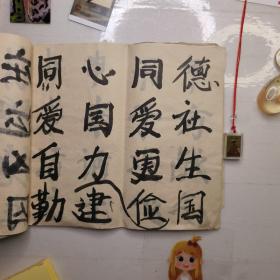 同心同德
爱国爱社
自力更生
勤建俭国